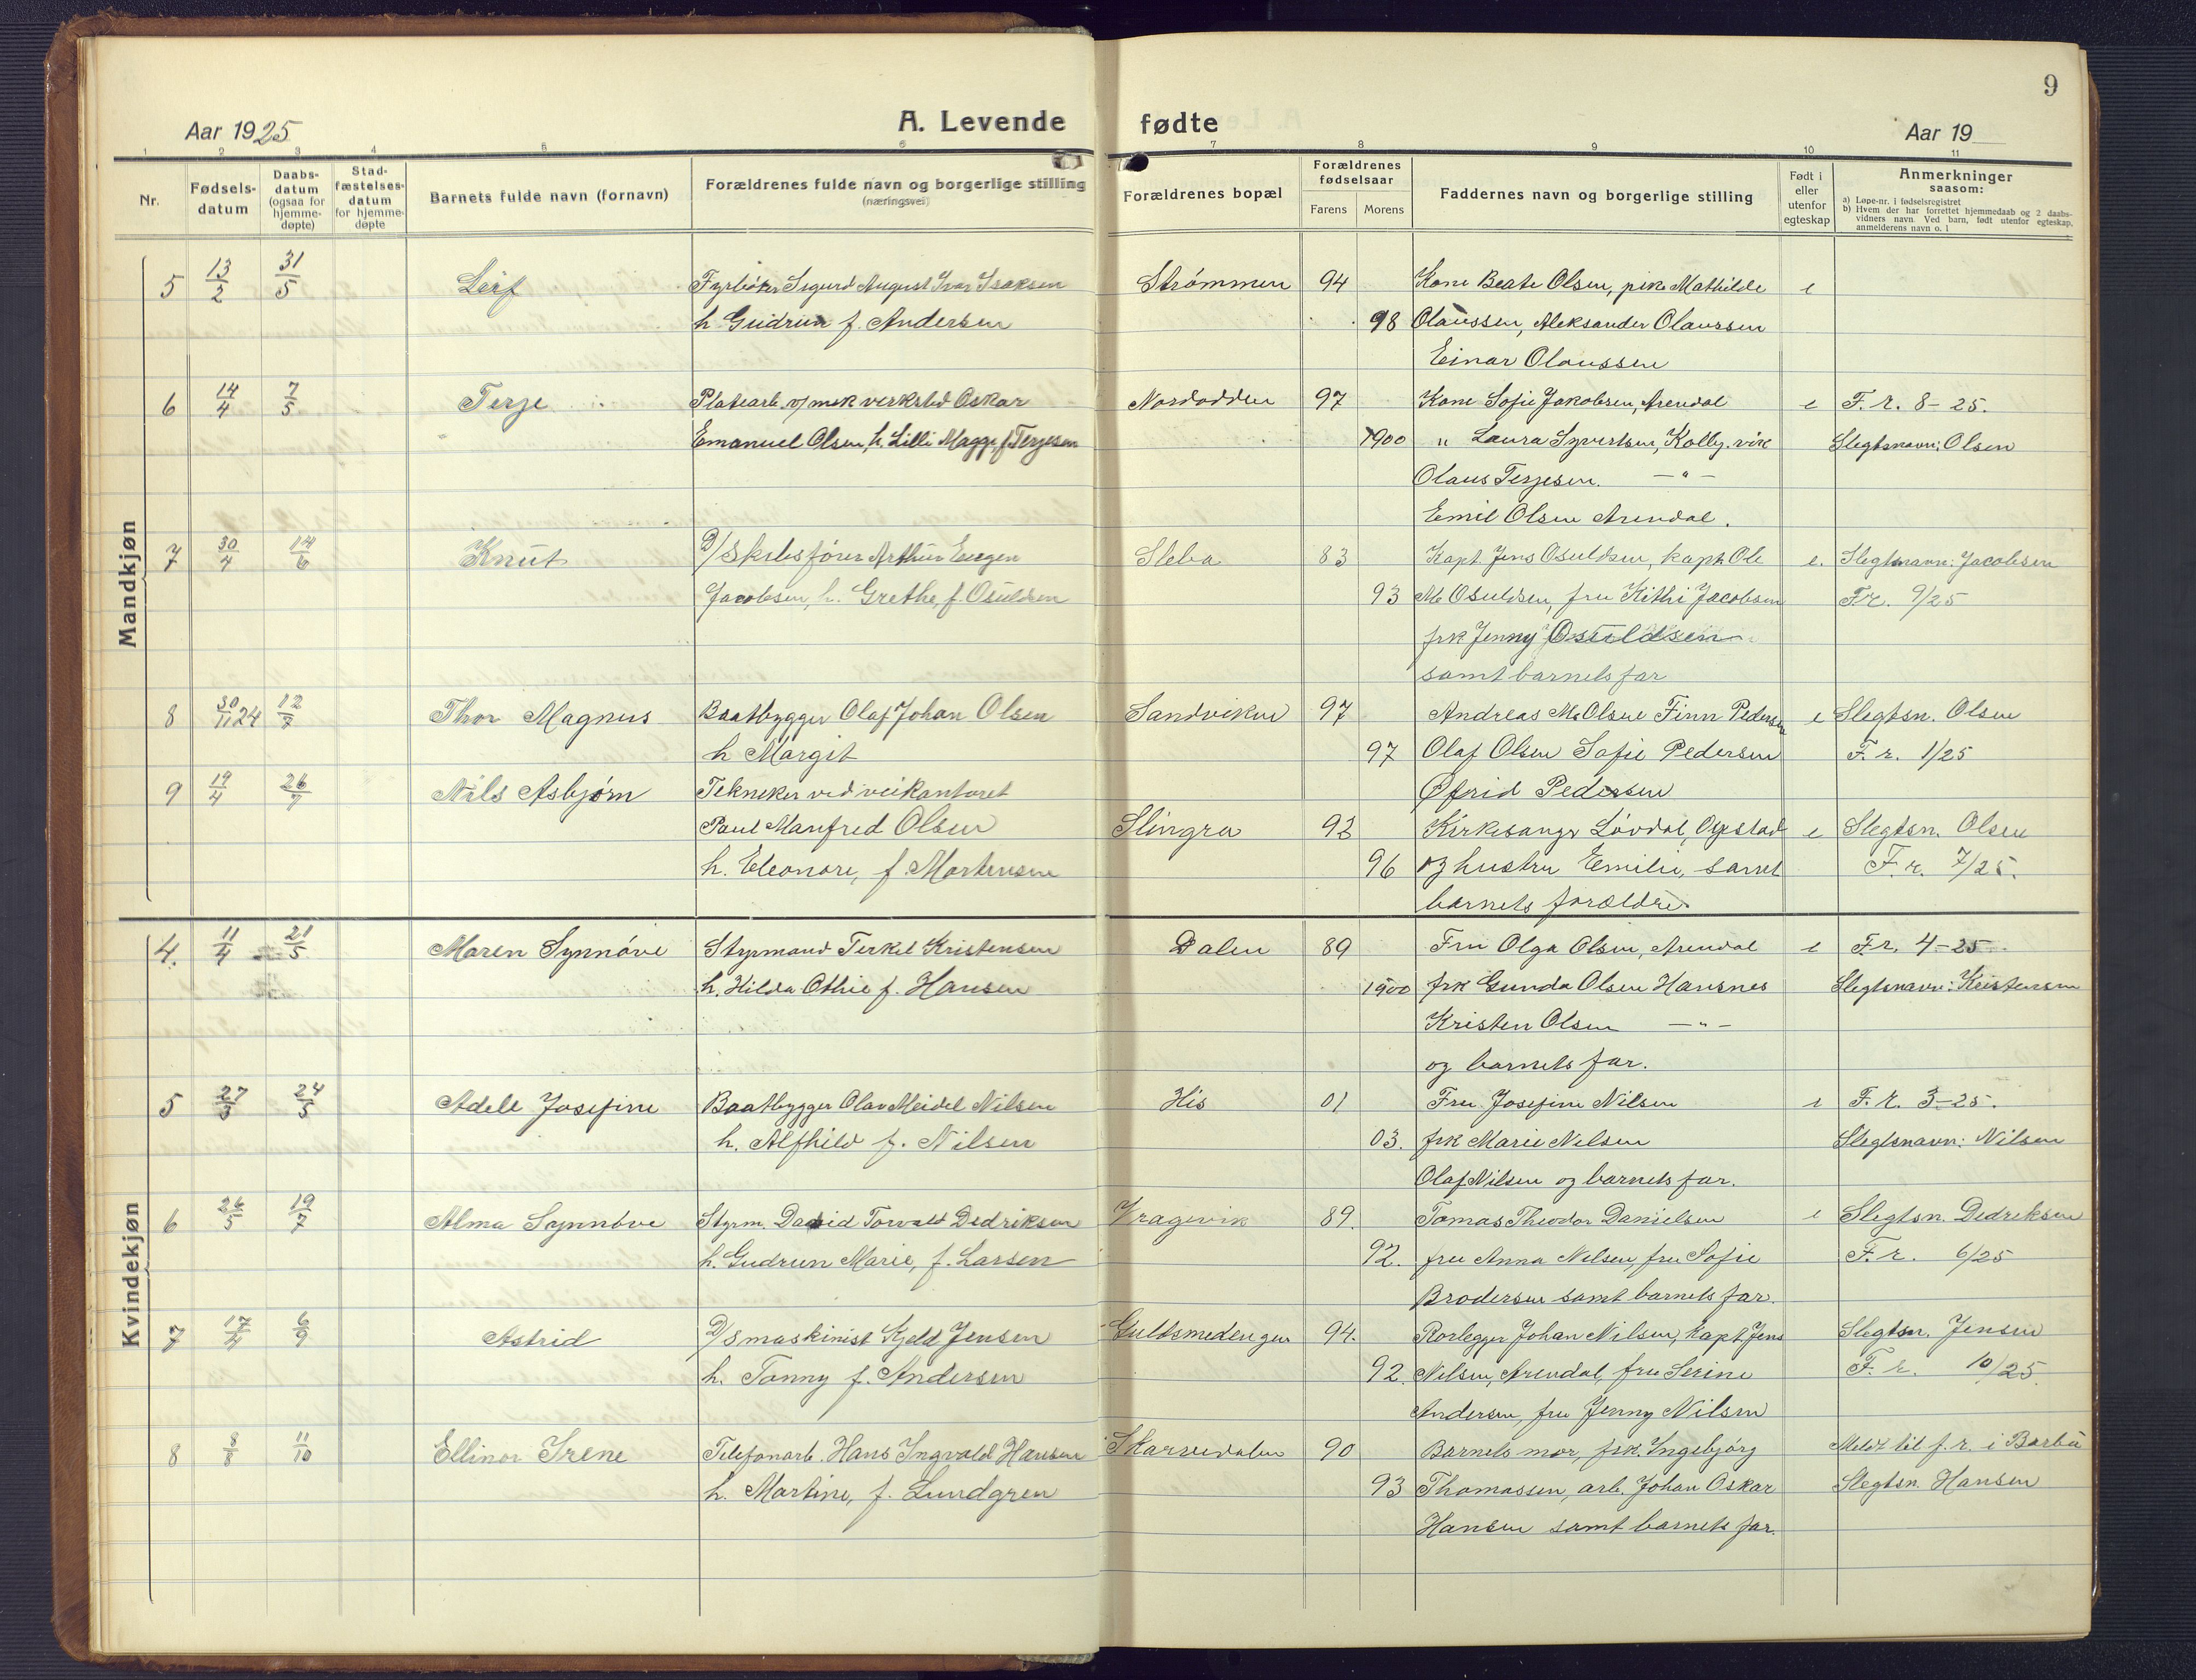 9
Aar 1925
A. Levende
fødte
Aar 19
1 2 3 4 5 6 7 8 9 10 11
Nr.
Fødsels-
datum
Daabs-
datum
(ogsaa for
hjemme-
døpte)
Stad-
fæstelses-
datum
for hjemme-
døpte
Barnets fulde navn (fornavn)
Forældrenes fulde navn og borgerlige stilling
(næringsvei)
Forældrenes bopæl
Forældrenes
fødselsaar
Farens Morens
Faddernes navn og borgerlige stilling
Født i
eller
utenfor
egteskap
Anmerkninger
saasom:
a) Løpe-nr. i fødselsregistret
b) Hvem der har forrettet hjemmedaab og 2 daabs-
vidners navn. Ved barn, født utenfor egteskap,
anmelderens navn o. l
Mandkjøn
5 13/2 31/5 Leif Fyrbøter Sigurd August Ivar Isaksen Strømmen 94 Kone Beate Olsen, pike Mathilde e
h Gudrun f. Andersen 98 Olaussen, Aleksander Olaussen
Einar Olaussen
6 14/4 7/5 Terje Platearb. v/ mek verksted Oskar Nordodden 97 Kone Sofie Jakobsen, Arendal e F. r. 8-25.
Emanuel Olsen, h. Lilli Magge f. Terjesen 1900 " Laura Syvertsen, Kolbj.vik Slegtsnavn: Olsen
Olaus Terjesen. - " -
Emil Olsen Arendal.
7 30/4 14/6 Knut D/Skibsfører Arthur Eugen Sleba 83 Kapt. Jens Osuldsen, kapt. Ole e. Slegtsnavn: Jacobsen
Jacobsen, h. Grethe, f. Osuldsen 93 M. Osuldsen, fru Kithi Jacobsen F.r. 9/25
frk Jenny Osuldsen
samt barnets far
8 30/11 24 12/7 Thor Magnus Baatbygger Olaf Johan Olsen Sandviken 97 Andreas M. Olsen Finn Pedersen e Slegtsn. Olsen
h Margit 97 Olaf Olsen Sofie Pedersen F. r. 1/25
9 19/4 26/7 Nils Asbjørn Tekneker ved veikontoret Pedersen
Paul Manfred Olsen Slingra 92 Kirkesanger Løvdal, Opstad e Slegtsn. Olsen
h. Eleonore, f. Mortensen 96 og hustru Emilie, samt F. r. 7/25.
barnets forældre
Kvindekjøn
4. 11/4 21/5 Maren Synnøve Styrmand Terkel Kristensen Dalen 89 Fru Olga Olsen, Arendal e F.r. 4-25
h. Hilda Othie f. Hansen 1900 frk Gunda Olsen Hansnes Slegtsnavn: Kristensen
Kristen Olsen - " -
og barnets far.
5 27/3 24/5 Adele Josefine Baatbygger Olav Meidel Nilsen His 01 Fru Josefine Nilsen e F. r. 3-25.
h. Alfhild f. Nilsen 03. frk Marie Nilsen Slegtsnavn: Nilsen
Olaf Nilsen og barnets far.
6 26/5 19/7 Alma Synnøve Styrm. David Torvald Dedriksen Kragevik 89. Tomas Theodor Danielsen e Slegtsn. Dedreksen
h. Gudrun Marie, f. Larsen 92. fru Anna Nilsen, fru Sofie F. r. 6/25
Brodersen samt barnets far.
7 17/4 6/9 Astrid D/s maskinist Kjeld Jensen Guldsmedengen 94. Rørlegger Johan Nilsen, kapt. Jens Slegtsn. Jensen
h. Tonny f. Andersen 92. Nilsen, Arendal, fru Serine F. r. 10/25
Andersen, fru Jenny Nilsen
8 8/8 11/10 Ellinor Irene Telefonarb. Hans Ingvald Hansen Skarsedalen 90 Barnets mor, frk. Ingebjørg Meldt til f. r. i Barbu
h. Martine, f. Lundgren 93 Thomassen, arb. Johan Oskar Slegtsn. Hansen
Hansen samt barnets far.